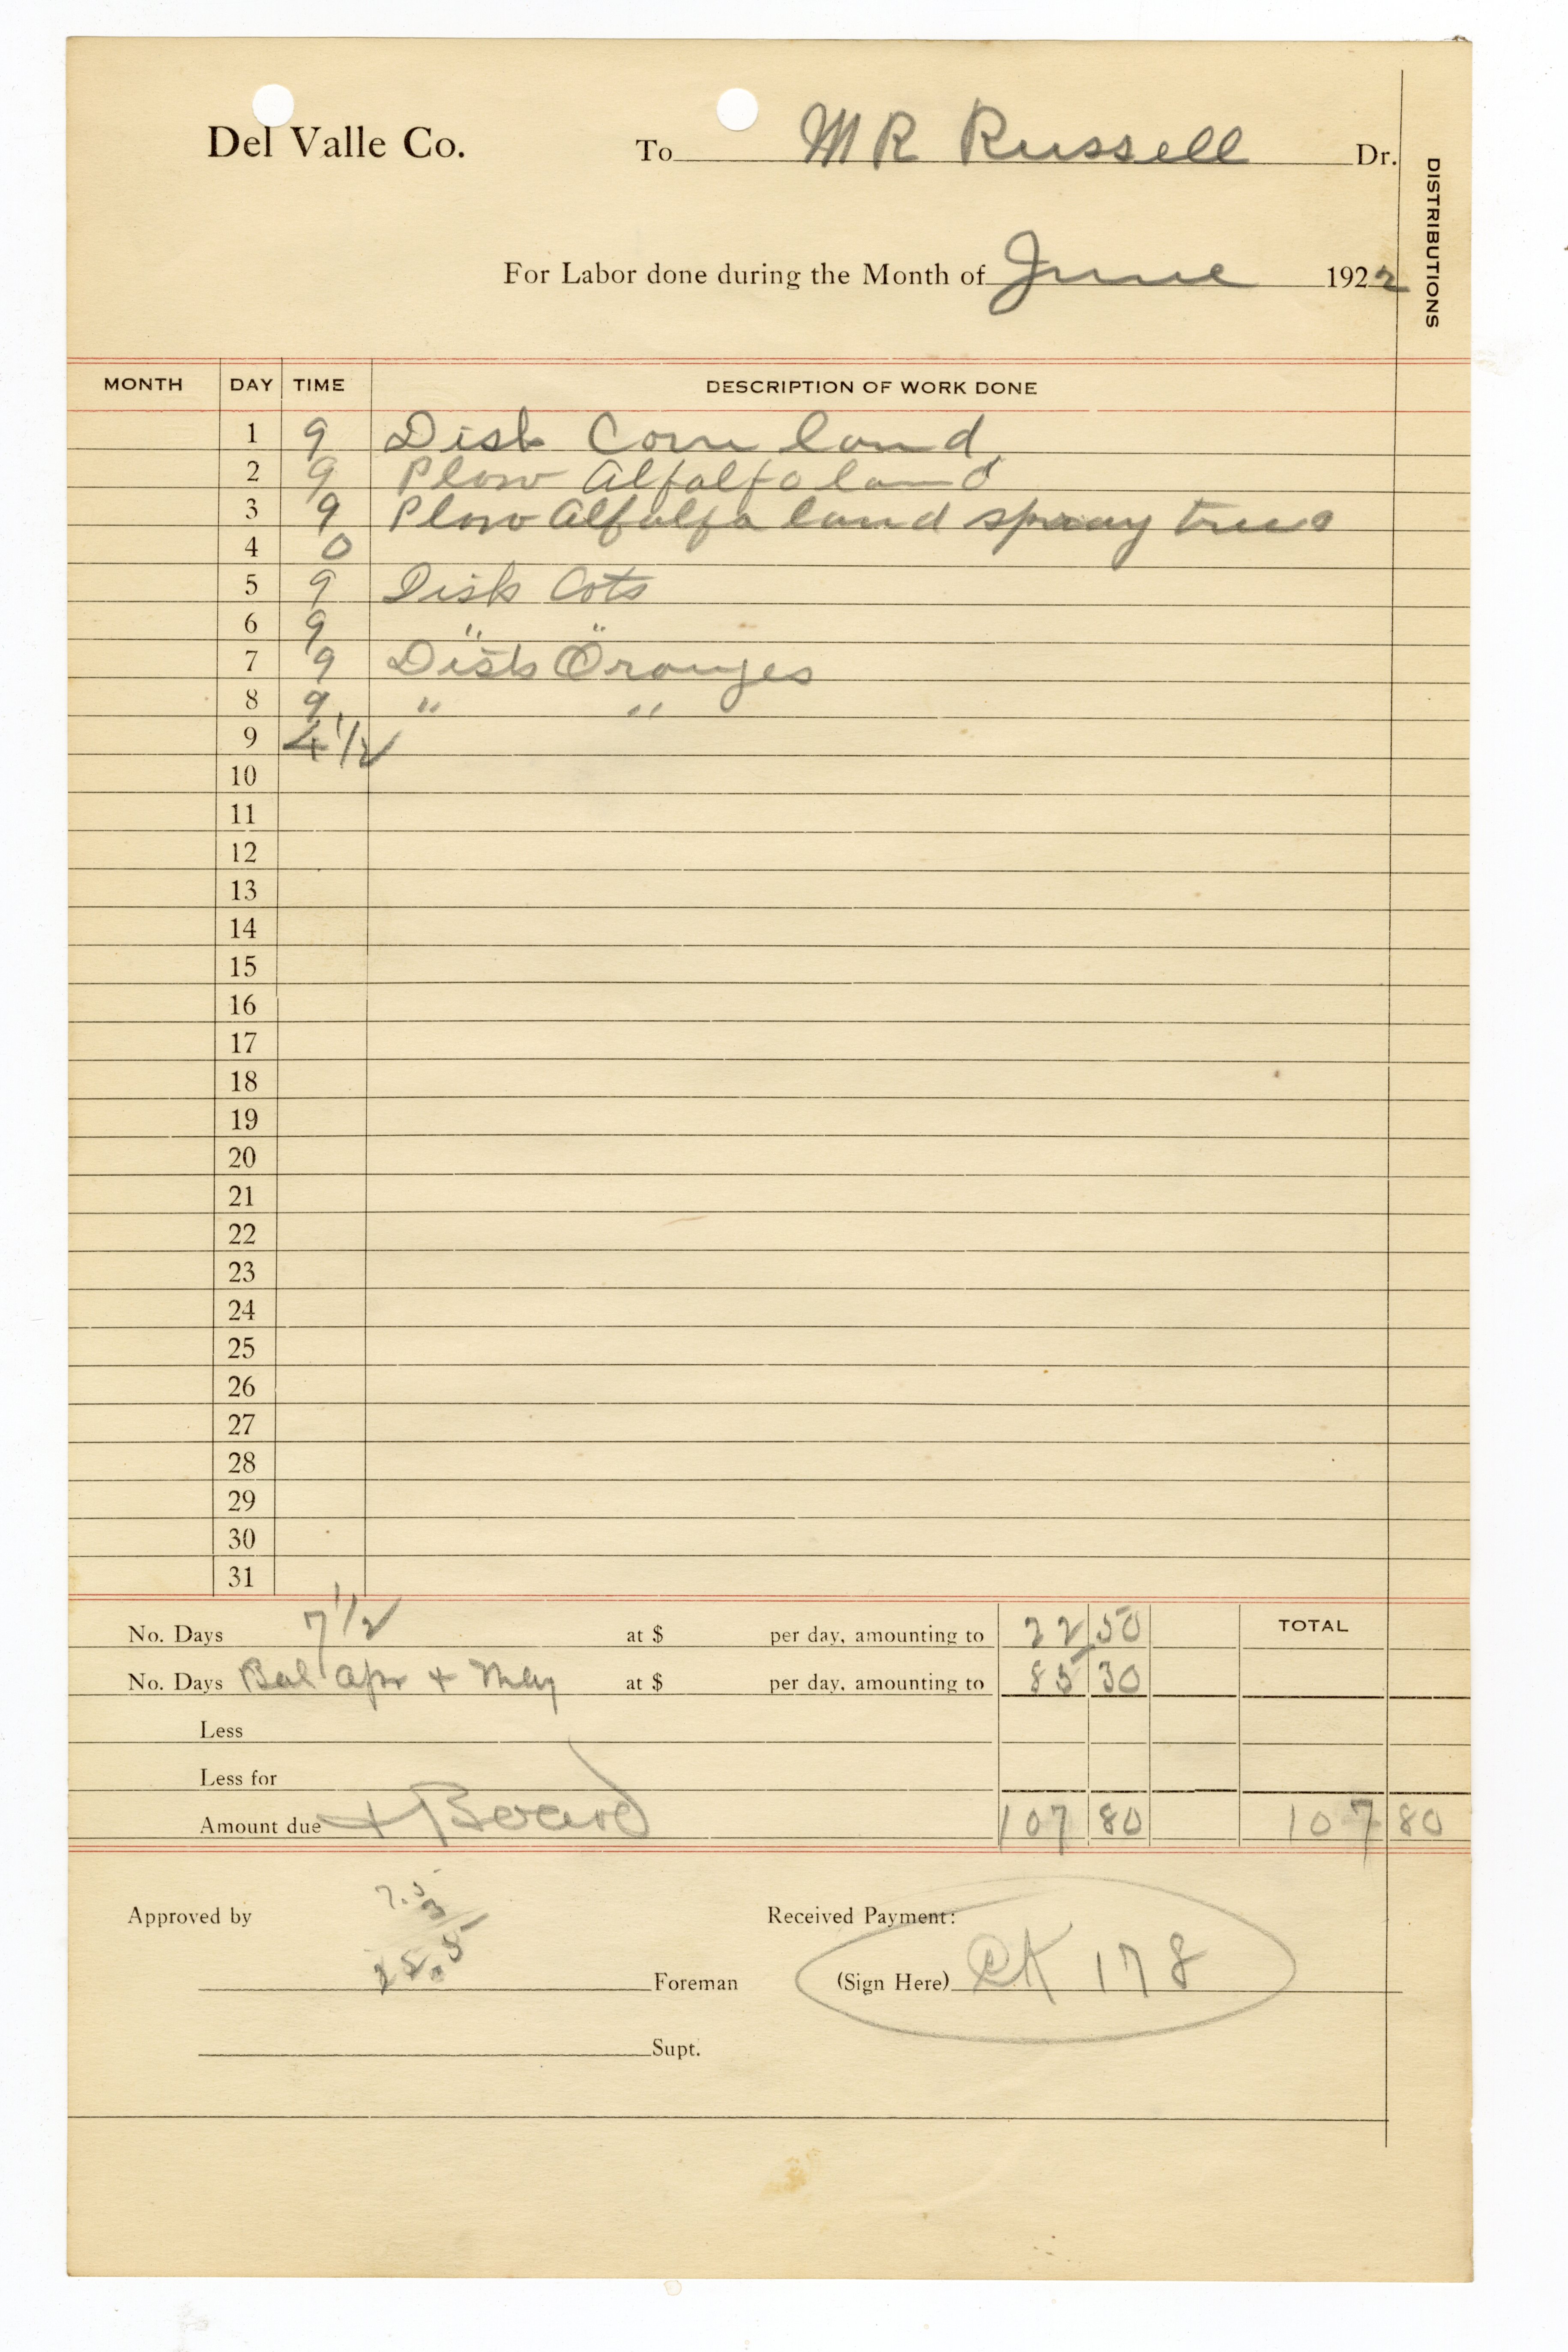 Del Valle Co. To MR Russell Dr.
DISTRIBUTIONS
For Labor done during the Month of June 1922
MONTH DAY TIME DESCRIPTION OF WORK DONE
1 9 Disk Corn land
2 9 Plow Alfalfa land
3 9 Plow Alfalfa land spray trees
4 0
5 9 Disk Cots
6 9 " "
7 9 Disk Oranges
8 9 " "
9 4 1/2
10
11
12
13
14
15
16
17
18
19
20
21
22
23
24
25
26
27
28
29
30
31
No. Days 7 1/2 at $ per day, amounting to 22 50 TOTAL
No. Days Bal Apr + May at $ per day, amounting to 85 30
Less
Less for
Amount due + Board 107 80 107 80
Approved by Received Payment:
7.5
3
Foreman (Sign Here) CK 178
Supt.